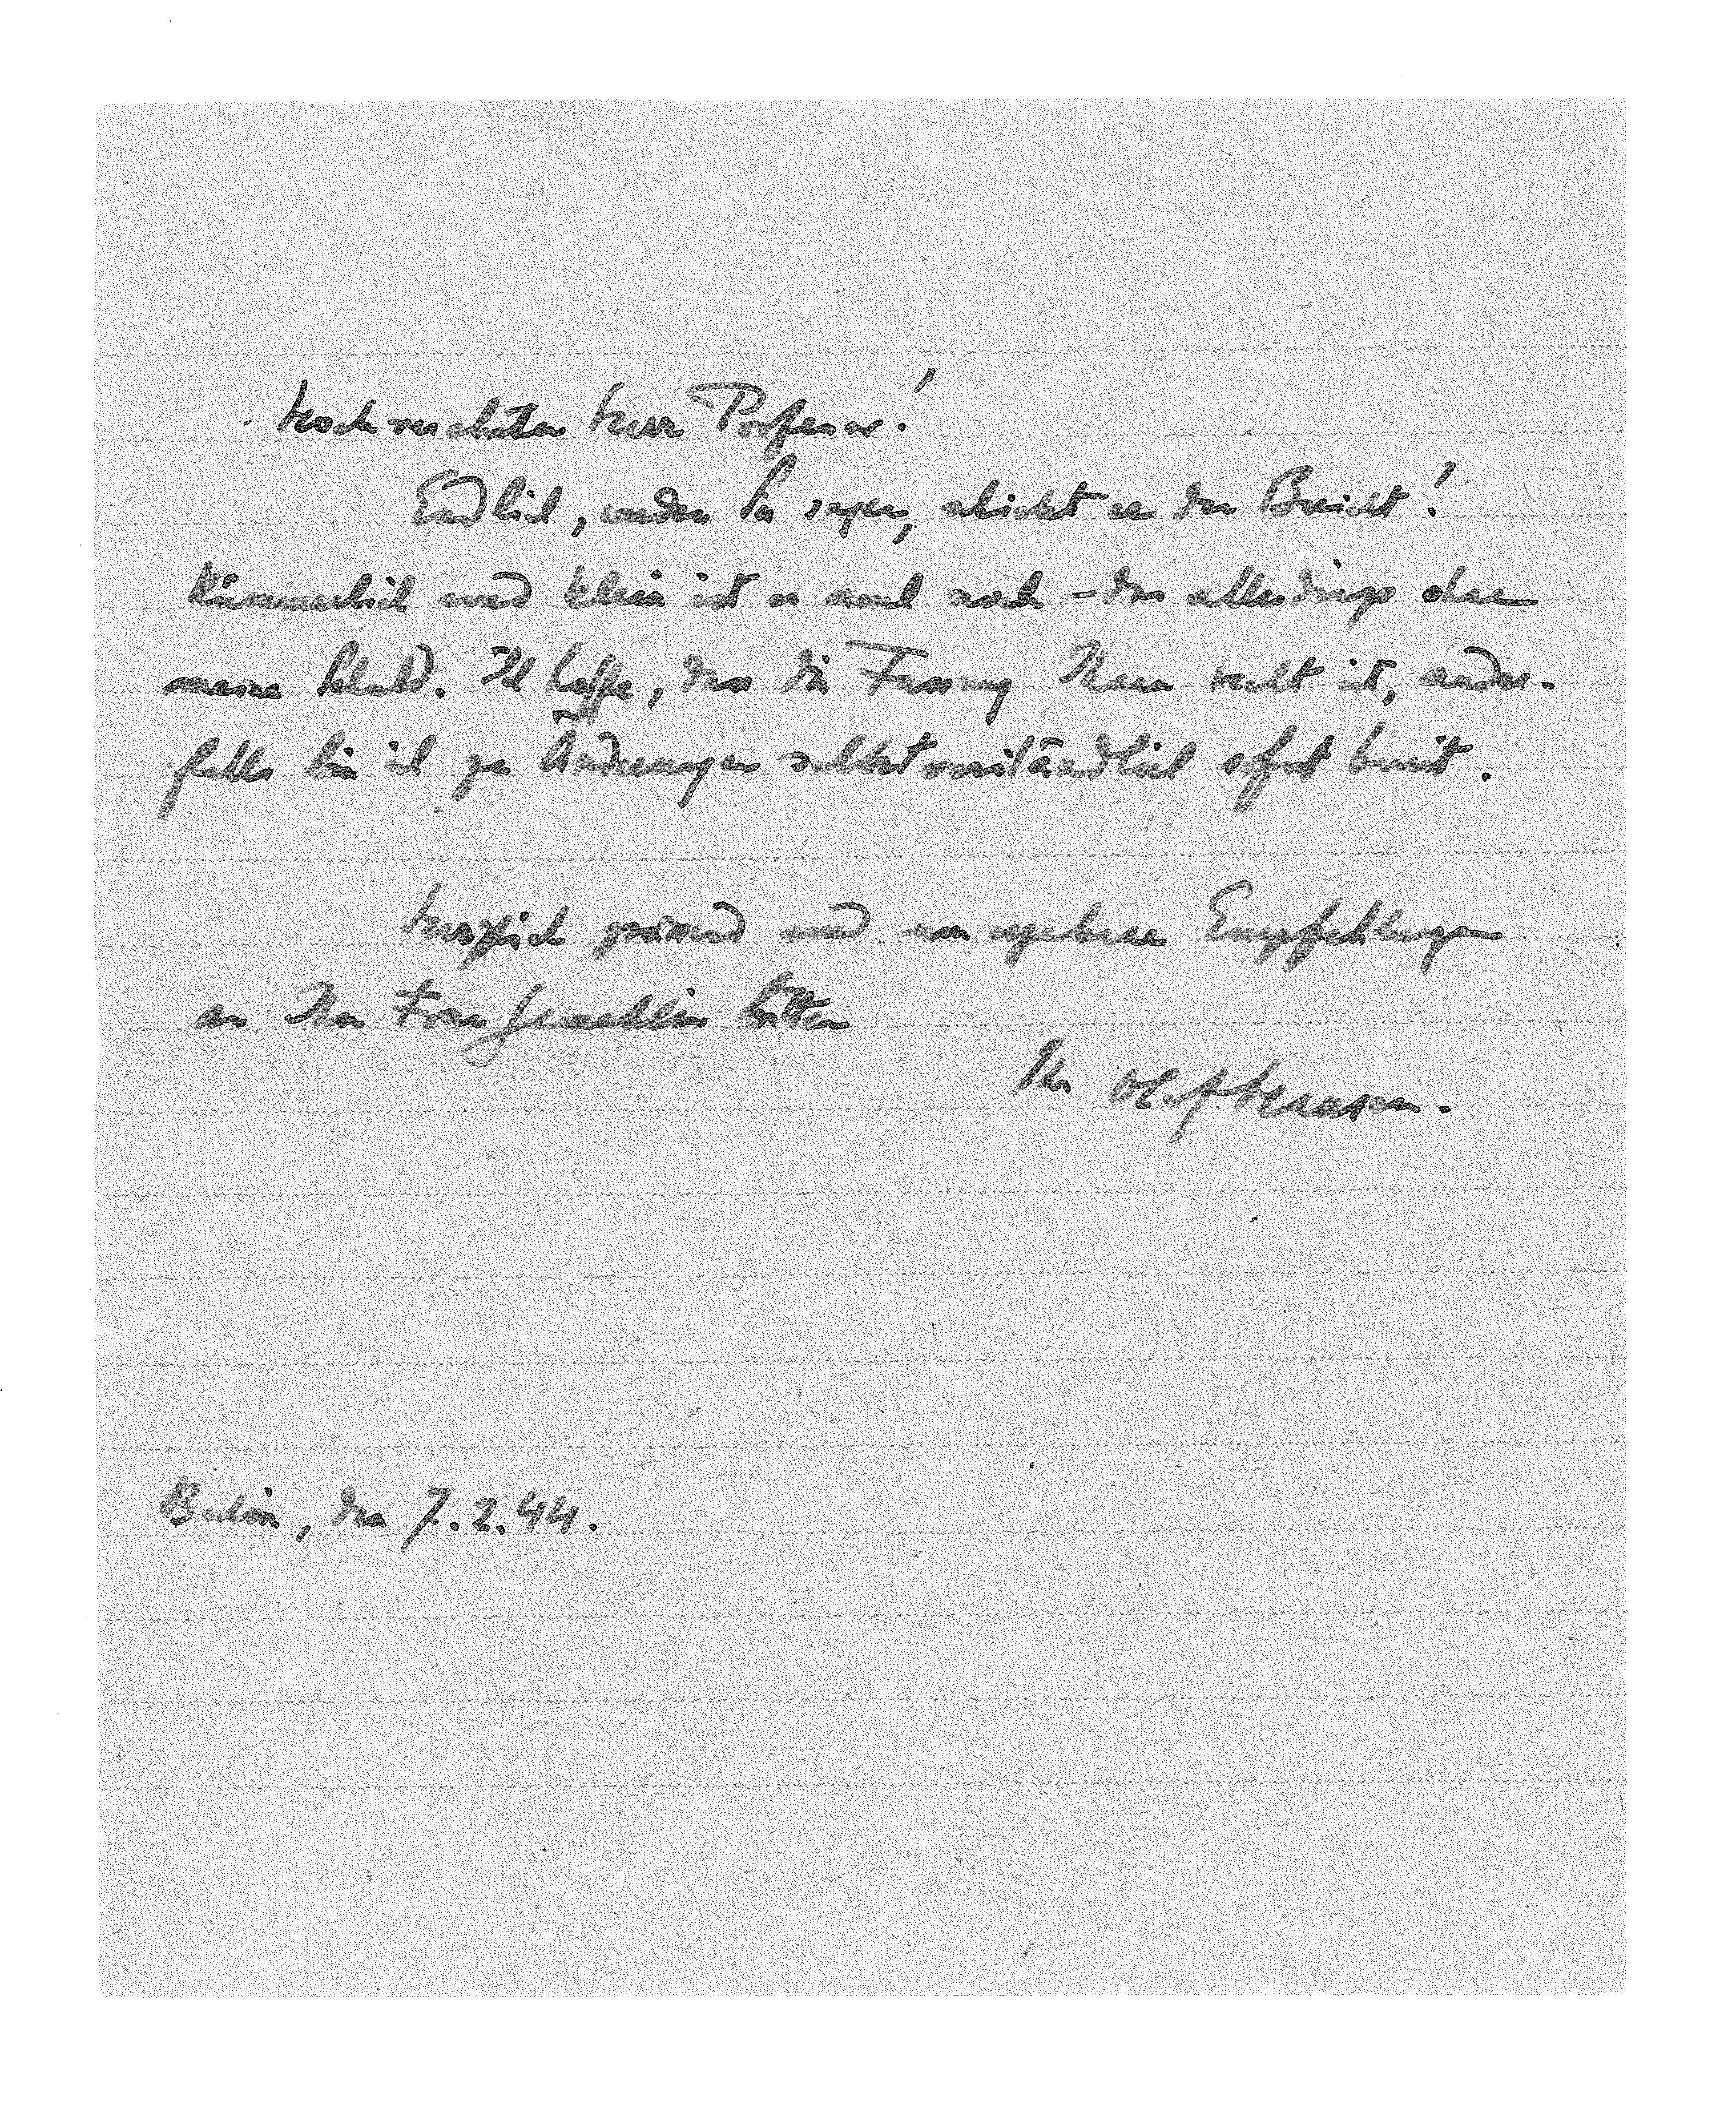 Hochverehrter Herr Professor!
Endlich, werden Sie sagen, schickt er den Bericht!
Kümmerlich und klein ist er auch noch – das allerdings ohne
meine Schuld. Ich hoffe, dass die Fassung Ihnen recht ist, andern-
falls bin ich zu Änderungen selbstverständlich sofort bereit.
Herzlich grüssend und um ergebene Empfehlungen
an Ihre Frau Gemahlin bitten
Ihr Olaf Hansen.
Berlin, den 7.2.44.